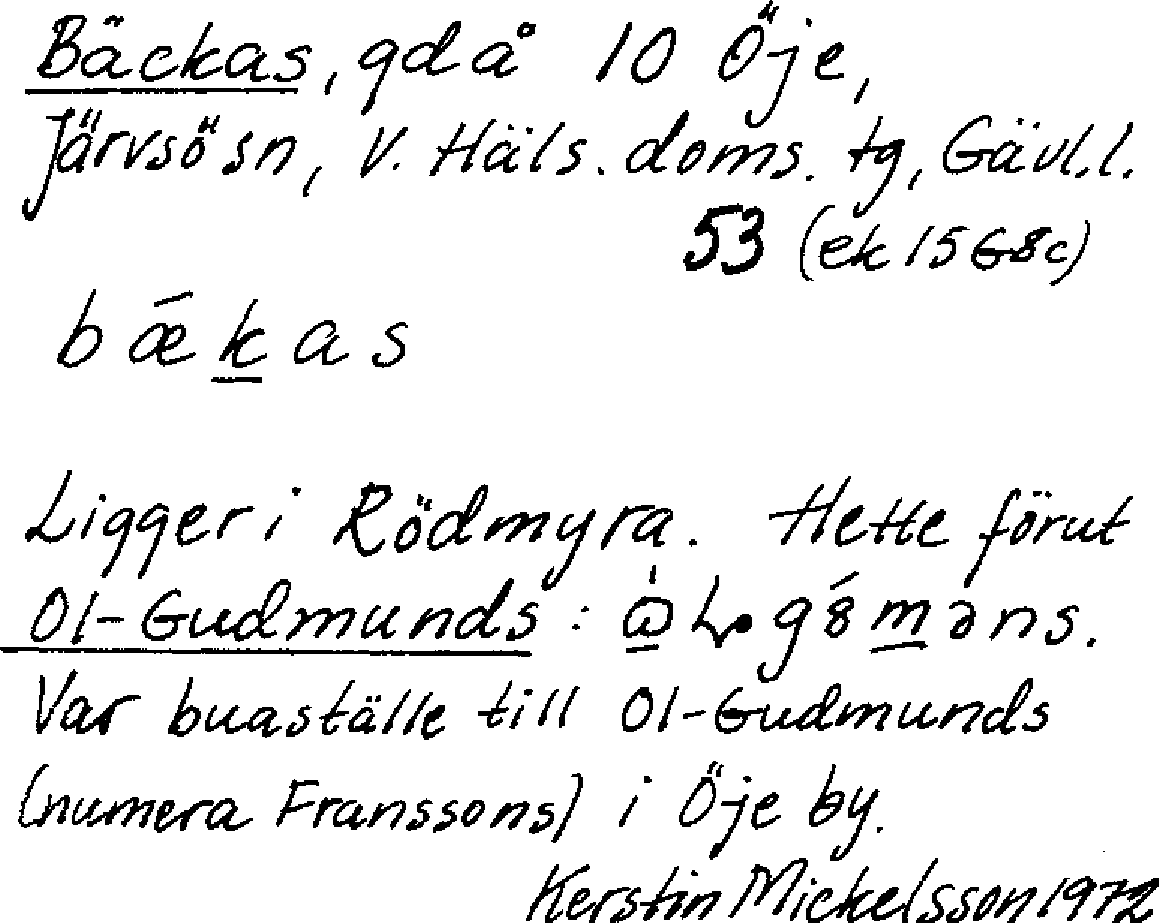 Bäckas, gd å 10 Öje,
Järvsö sn, V. Häls. doms. tg, Gävl.l.
53 (ek 15G8c)
b ǽ k a s
Ligger i Rödmyra. Hette förut
Ol-Gudmunds :
Var buaställe till Ol-Gudmunds
(numera Franssons) i Öje by.
Kerstin Mickelsson 1972